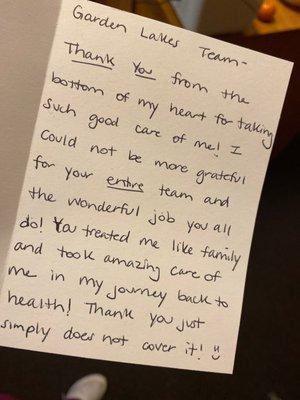 Garden Lakes Team-
Thank You from the
bottom of my heart for taking
such good care of me! I
could not be more grateful
for your entire team and
the wonderful job you all
do! You treated me like family
and took amazing care of
me in my journey back to
health! Thank you just
simply does not cover it! :)